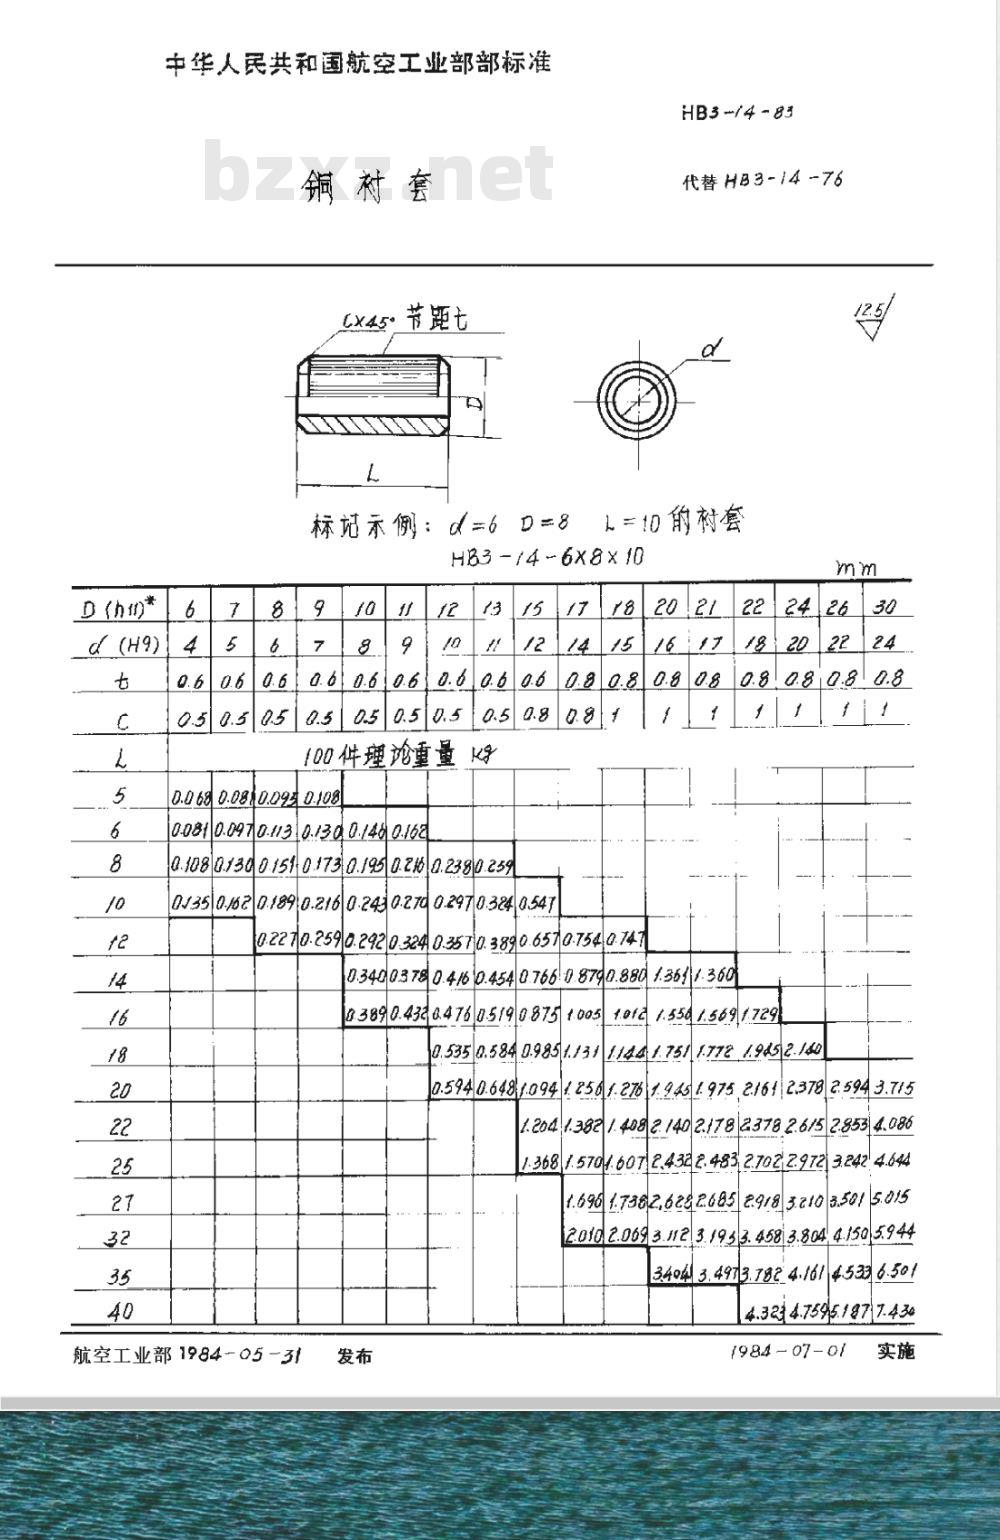 中华人民共和国航空工业部部标准
HB3-14-83
bzxz.net
铜衬套
代替 HB3-14-76
C×45° 节距t
12.5
d
D
L
标记示例: d=6 D=8 L=10的衬套
HB3-14-6×8×10
mm
D (h11)* 6 7 8 9 10 11 12 13 15 17 18 20 21 22 24 26 30
d (H9) 4 5 6 7 8 9 10 11 12 14 15 16 17 18 20 22 24
t 0.6 0.6 0.6 0.6 0.6 0.6 0.6 0.6 0.6 0.8 0.8 0.8 0.8 0.8 0.8 0.8 0.8
C 0.5 0.5 0.5 0.5 0.5 0.5 0.5 0.5 0.8 0.8 1 1 1 1 1 1 1
L 100件理论重量 kg
5 0.068 0.081 0.095 0.108
6 0.081 0.097 0.113 0.130 0.146 0.162
8 0.108 0.130 0.151 0.173 0.195 0.216 0.238 0.259
10 0.135 0.162 0.189 0.216 0.243 0.270 0.297 0.324 0.547
12 0.227 0.259 0.292 0.324 0.357 0.389 0.657 0.754 0.747
14 0.340 0.378 0.416 0.454 0.766 0.879 0.880 1.361 1.360
16 0.389 0.432 0.476 0.519 0.875 1.005 1.012 1.556 1.569 1.729
18 0.535 0.584 0.985 1.131 1.144 1.751 1.772 1.945 2.140
20 0.594 0.648 1.094 1.256 1.276 1.945 1.975 2.161 2.378 2.594 3.715
22 1.204 1.382 1.408 2.140 2.178 2.378 2.615 2.853 4.086
25 1.368 1.570 1.607 2.432 2.483 2.702 2.972 3.242 4.644
27 1.696 1.738 2.628 2.685 2.918 3.210 3.501 5.015
32 2.010 2.069 3.112 3.193 3.458 3.804 4.150 5.944
35 3.404 3.497 3.782 4.161 4.533 6.501
40 4.323 4.759 5.187 7.430
航空工业部 1984-05-31 发布 1984-07-01 实施